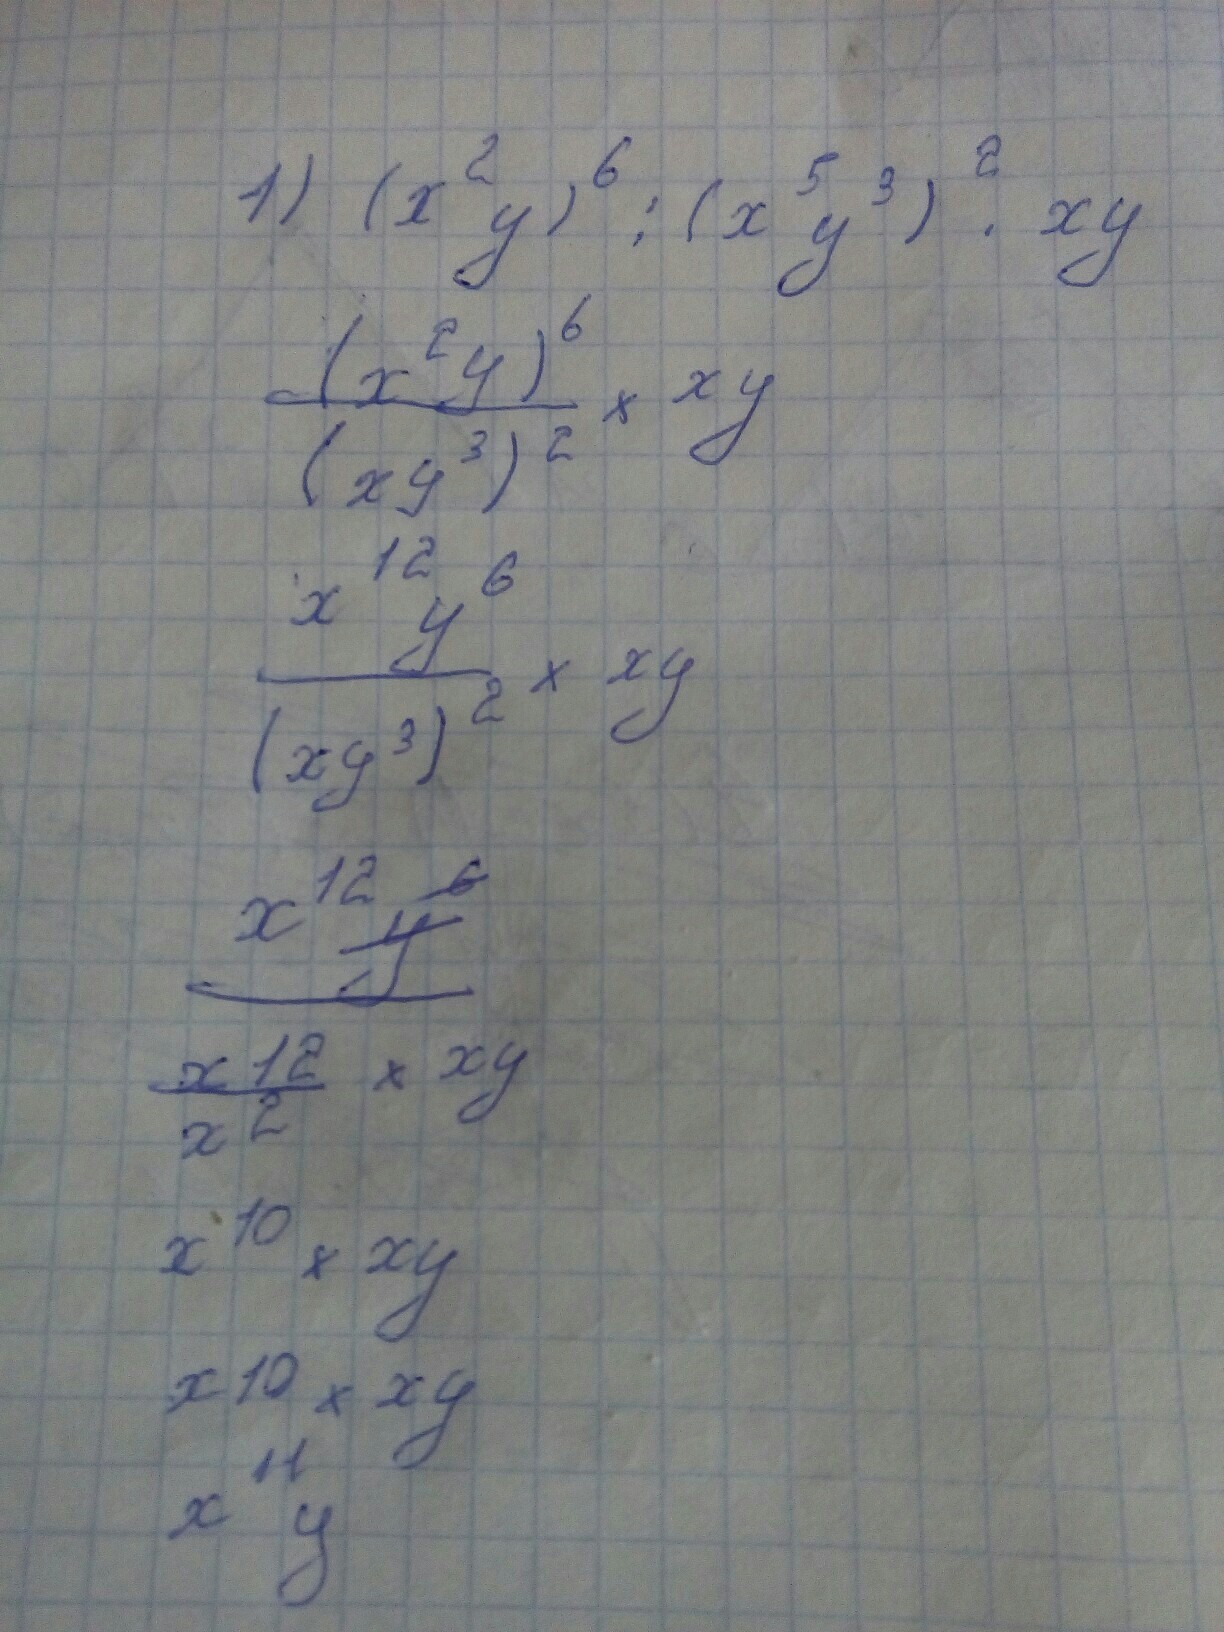 1) (x²y)⁶ : (x⁵y³)² · xy
(x²y)⁶ / (xy³)² × xy
x¹²y⁶ / (xy³)² × xy
x¹² y⁶
x12 / x² × xy
x¹⁰ × xy
x10 × xy
x¹¹y